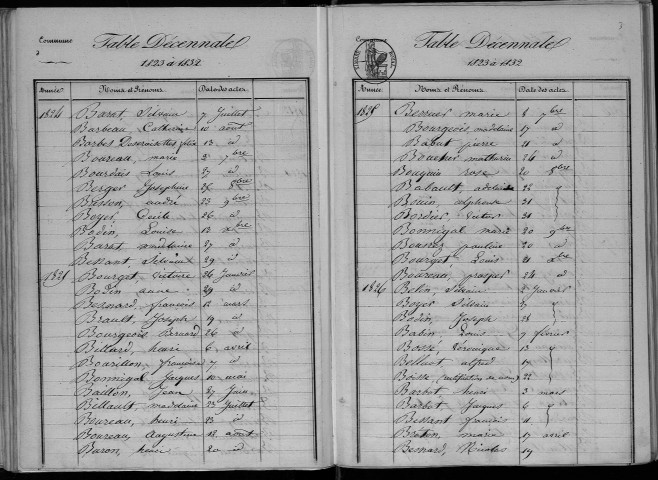 Commune
Table Décennale
1823 à 1832
Année Noms et Prénoms Date des actes
1824 Barat, Silvain 7 Juillet
Barbeau Catherine 10 aout
Barbes 13 d
Boureau, marie 2 7bre
Bourdais Louis 27 d
Berger Josephine 26 8bre
Brisson, andré 22 9bre
Boyer, Cecile 26 d
Bodin, Louise 13 xbre
Barat, madelaine 27 d
Bessant Silvain 29 d
1825 Bourget, Victoire 26 Janvier
Bodin anne 29 d
Besnard, francois 12 mars
Brault, Joseph 19 d
Bourgeois Bernard 26 d
Billard, henri 6 avril
Bourillon, francoise 7 d
Bonnigal Jacques 10 mai
Baillon, Jean 27 Juin
Billault, madelaine 13 Juillet
Boureau, henri 23 d
Boureau, Augustine 12 aout
Baron, henri 20 d
Commune
Table Décennale
1823 à 1832
Année Noms et Prénoms Date des actes
1825 Bernier marie 8 7bre
Bourgeois, madelaine 17 d
Babut pierre 21 d
Boucher mathurin 26 d
Bouquin rose 20 8bre
Babault, adelaide 22
Bouin, alphonse 21
Bordier, Victor 31
Bonnigal marie 20 9bre
Bourez pauline 20 d
Bourget Louis 21 xbre
Boureau, prosper 24 d
1826 Belin, 2 Janvier
Boyer Silvain
Bodin, Joseph 28
Babin, Louis 9 fevrier
Boissé, Véronique 13
Bellault, alfred 17
Boisse (rectification de nom) 22
Barbot henri 3 mars
Barbot Jacques 6
Bessant francois 11
Breton, marie 17 avril
Besnard, Nicolas 19